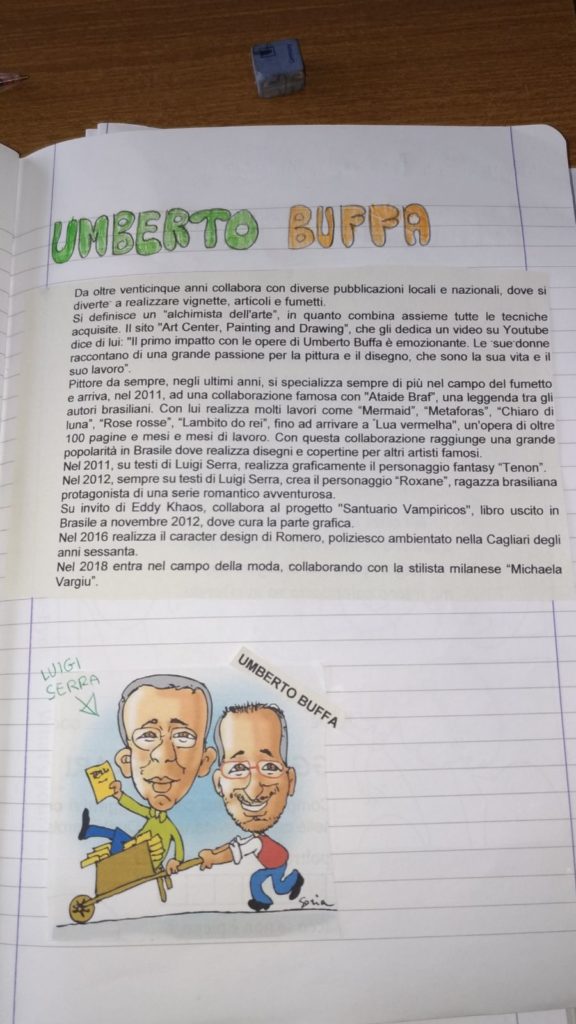 UMBERTO BUFFA
Da oltre venticinque anni collabora con diverse pubblicazioni locali e nazionali, dove si
diverte a realizzare vignette, articoli e fumetti.
Si definisce un "alchimista dell'arte", in quanto combina assieme tutte le tecniche
acquisite. Il sito "Art Center, Painting and Drawing", che gli dedica un video su Youtube
dice di lui: "Il primo impatto con le opere di Umberto Buffa è emozionante. Le sue donne
raccontano di una grande passione per la pittura e il disegno, che sono la sua vita e il
suo lavoro".
Pittore da sempre, negli ultimi anni, si specializza sempre di più nel campo del fumetto
e arriva, nel 2011, ad una collaborazione famosa con "Ataide Braf", una leggenda tra gli
autori brasiliani. Con lui realizza molti lavori come "Mermaid", "Metaforas", "Chiaro di
luna", "Rose rosse", "Lambito do rei", fino ad arrivare a "Lua vermelha", un'opera di oltre
100 pagine e mesi e mesi di lavoro. Con questa collaborazione raggiunge una grande
popolarità in Brasile dove realizza disegni e copertine per altri artisti famosi.
Nel 2011, su testi di Luigi Serra, realizza graficamente il personaggio fantasy "Tenon".
Nel 2012, sempre su testi di Luigi Serra, crea il personaggio "Roxane", ragazza brasiliana
protagonista di una serie romantico avventurosa.
Su invito di Eddy Khaos, collabora al progetto "Santuario Vampiricos", libro uscito in
Brasile a novembre 2012, dove cura la parte grafica.
Nel 2016 realizza il caracter design di Romero, poliziesco ambientato nella Cagliari degli
anni sessanta.
Nel 2018 entra nel campo della moda, collaborando con la stilista milanese "Michaela
Vargiu".
LUIGI
SERRA
UMBERTO BUFFA
Soria